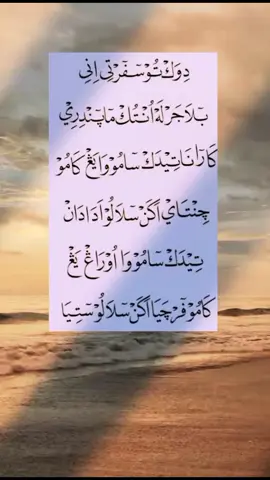 دوك توسفرتي اني
بلاجرله أنتوك مڤنديري
كارانا تيدك سامووا يڠ كامو
چنتاي اكن سلالو اد ادان
تيدك سامووا اورڠ يڠ
كامو فرچيا اكن سلالو ستيا